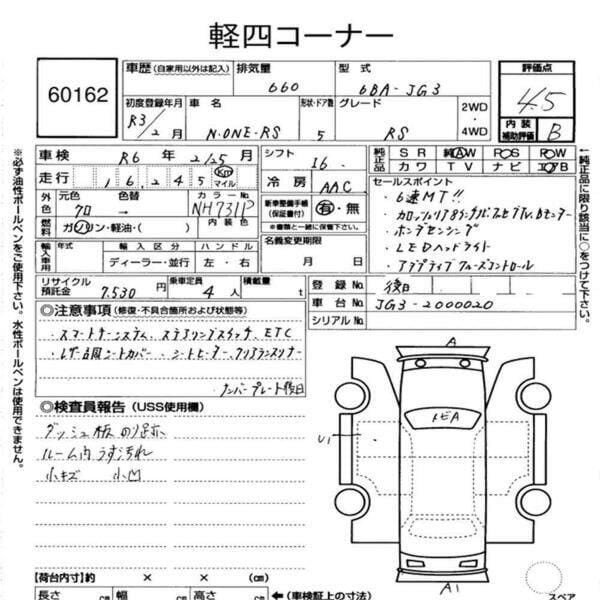 軽四コーナー
60162
車歴 (自家用以外は記入) 排気量 型式 評価点
660 6BA-JG3 4.5
初度登録年月 車名 形状・ドア数 グレード 2WD
R3/2月 N-ONE・RS 5 RS ・4WD
内装補助評価 B
車検 R6年2/25月 シフト I6
走行 16245 Km マイル 冷房 AAC
純正品 SR 純AW PS PW
カワ TV ナビ エアB
外色 元色 色替 カラーNo.
クロ → NH731P
新車整備手帳(保証書付) 有・無
※書類と一緒に保管して下さい。
燃料 ガソリン・軽油・( ) 内装色
名義変更期限
月 日
輸入車用 年式 輸入区分 ハンドル
ディーラー・並行 左・右
セールスポイント
・6速MT!!
・ホンダセンシング
・LEDヘッドライト
・アダプティブクルーズコントロール
リサイクル預託金 7,530円 乗車定員 4人 積載量 t
登録No. 後日
車台No. JG3-2000020
シリアルNo.
◎注意事項 (修復・不具合箇所および状態)
・スマートキーシステム、ステアリングスイッチ、ETC
・レザー調シートカバー・シートヒーター、クリアランスソナー
ナンバープレート後日
◎検査員報告 (USS使用欄)
ダッシュ板のり跡
ルーム内うす汚れ
小キズ 小凹
A
U1
A1
スペア
【荷台内寸】約 × × (㎝)
長さ 幅 高さ
㎝ ←(車検証上の寸法)
※必ず油性ボールペンをご使用下さい。水性ボールペンは使用できません。
←純正品に限り該当に○をつけて下さい。